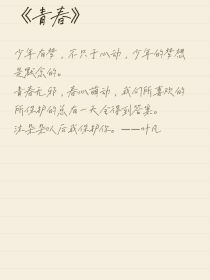 《青春》
少年有梦，不只于心动，少年的梦想
是默念的。
青春无邪，春心萌动，我们所喜欢的
所保护的总有一天会得到答案。
以后我保护你。——叶凡